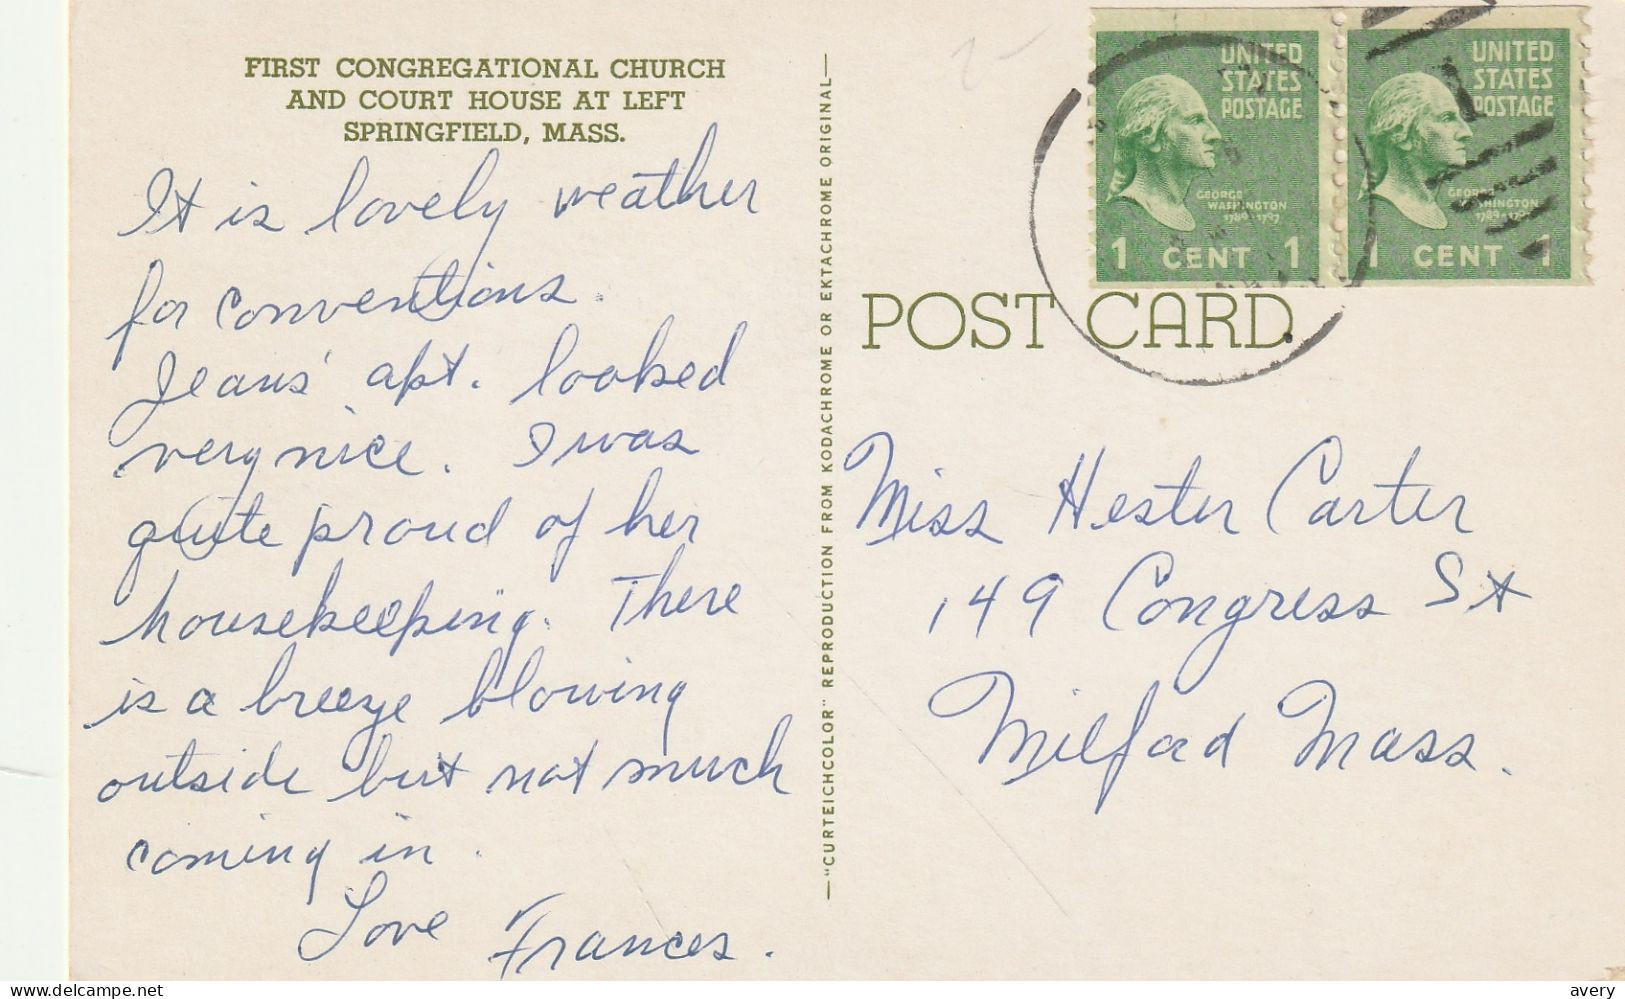 FIRST CONGREGATIONAL CHURCH
AND COURT HOUSE AT LEFT
SPRINGFIELD, MASS.
It is lovely weather
for conventions.
Jeans' apt. looked
very nice. I was
quite proud of her
housekeeping. There
is a breeze blowing
outside but not much
coming in.
Love Frances.
—"CURTEICHCOLOR" REPRODUCTION FROM KODACHROME OR EKTACHROME ORIGINAL—
UNITED
STATES
POSTAGE
GEORGE
WASHINGTON
1789-1797
1 CENT 1
UNITED
STATES
POSTAGE
GEORGE
WASHINGTON
1789-1797
1 CENT 1
POST CARD
Miss Hester Carter
149 Congress St
Milford Mass.
www.delcampe.net
avery